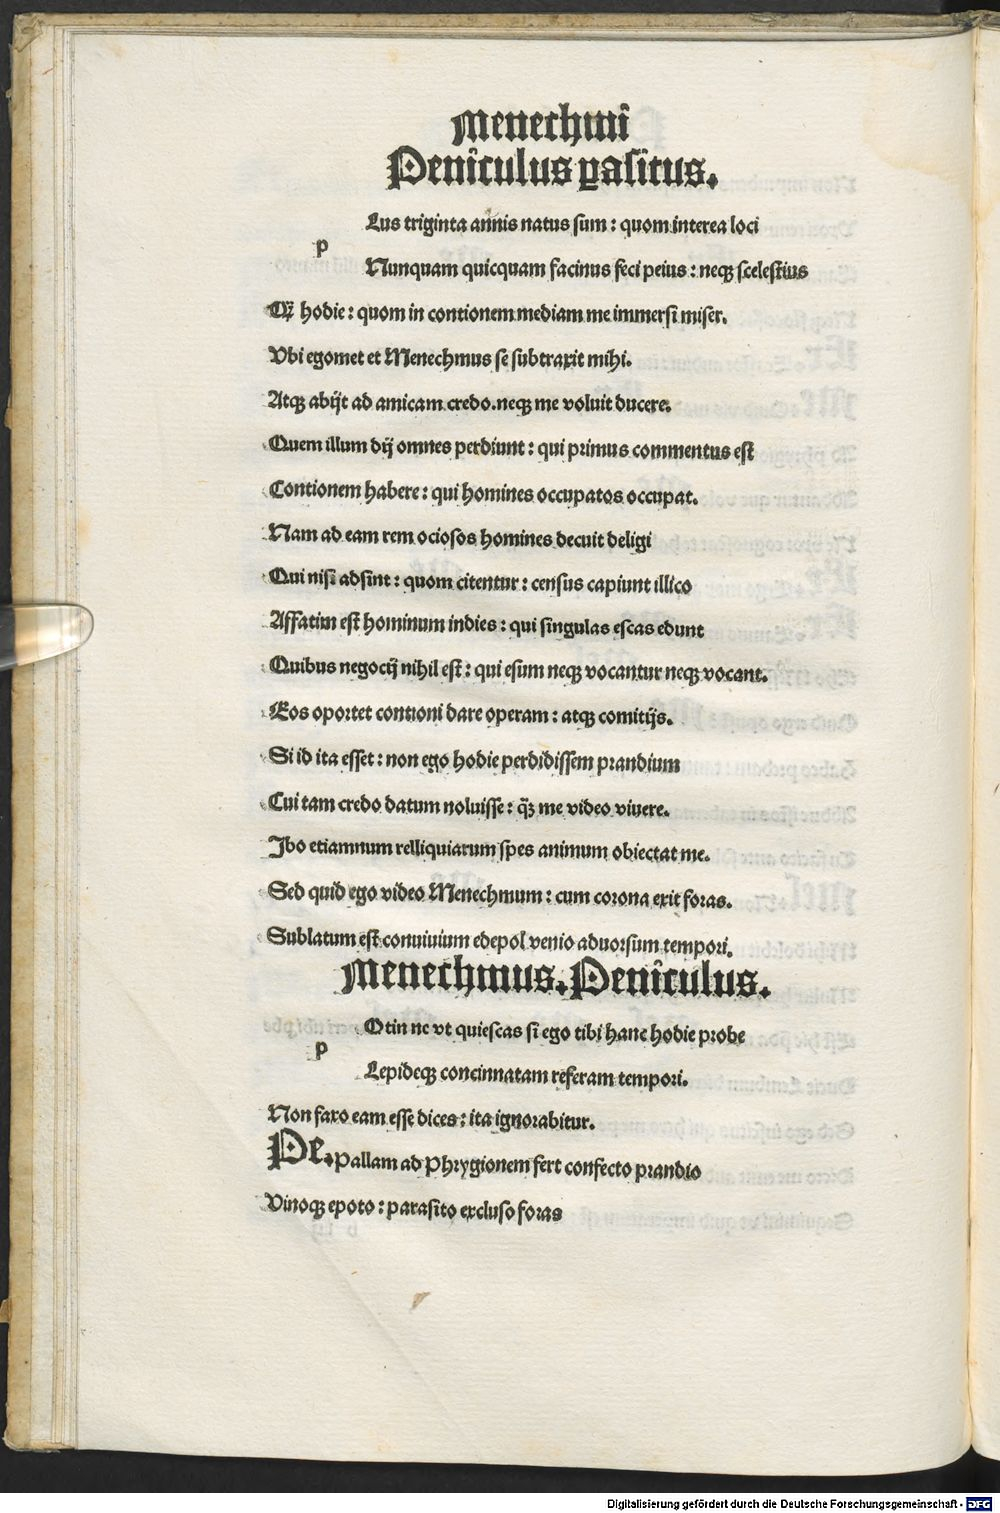 Menechmi
Peniculus ꝑasitus.
Lus triginta annis natus sum: quom interea loci
p
Nunquam quicquam facinus feci peius: neqꝫ scelestius
Qꝫ̃ hodie: quom in contionem mediam me immersi miser.
Vbi egomet et Menechmus se subtraxit mihi.
Atqꝫ abijt ad amicam credo. neqꝫ me voluit ducere.
Quem illum dij omnes perdiunt: qui primus commentus est
Contionem habere: qui homines occupatos occupat.
Nam ad eam rem ociosos homines decuit deligi
Qui nisi adsint: quom citentur: census capiunt illico
Affatim est hominum indies: qui singulas escas edunt
Quibus negocij nihil est: qui esum neqꝫ vocantur neqꝫ vocant.
Eos oportet contioni dare operam: atqꝫ comitijs.
Si id ita esset: non ego hodie perdidissem prandium
Cui tam credo datum noluisse: qꝫ̃ me video viuere.
Ibo etiamnum relliquiarum spes animum obiectat me.
Sed quid ego video Menechmum: cum corona exit foras.
Sublatum est conuiuium edepol venio aduorsum tempori.
Menechmus. Peniculus.
Otin nc vt quiescas si ego tibi hanc hodie probe
p
Lepideqꝫ concinnatam referam tempori.
Non faxo eam esse dices: ita ignorabitur.
Pe. Pallam ad Phrygionem fert confecto prandio
Vinoqꝫ epoto: parasito excluso foras
Digitalisierung gefördert durch die Deutsche Forschungsgemeinschaft - DFG